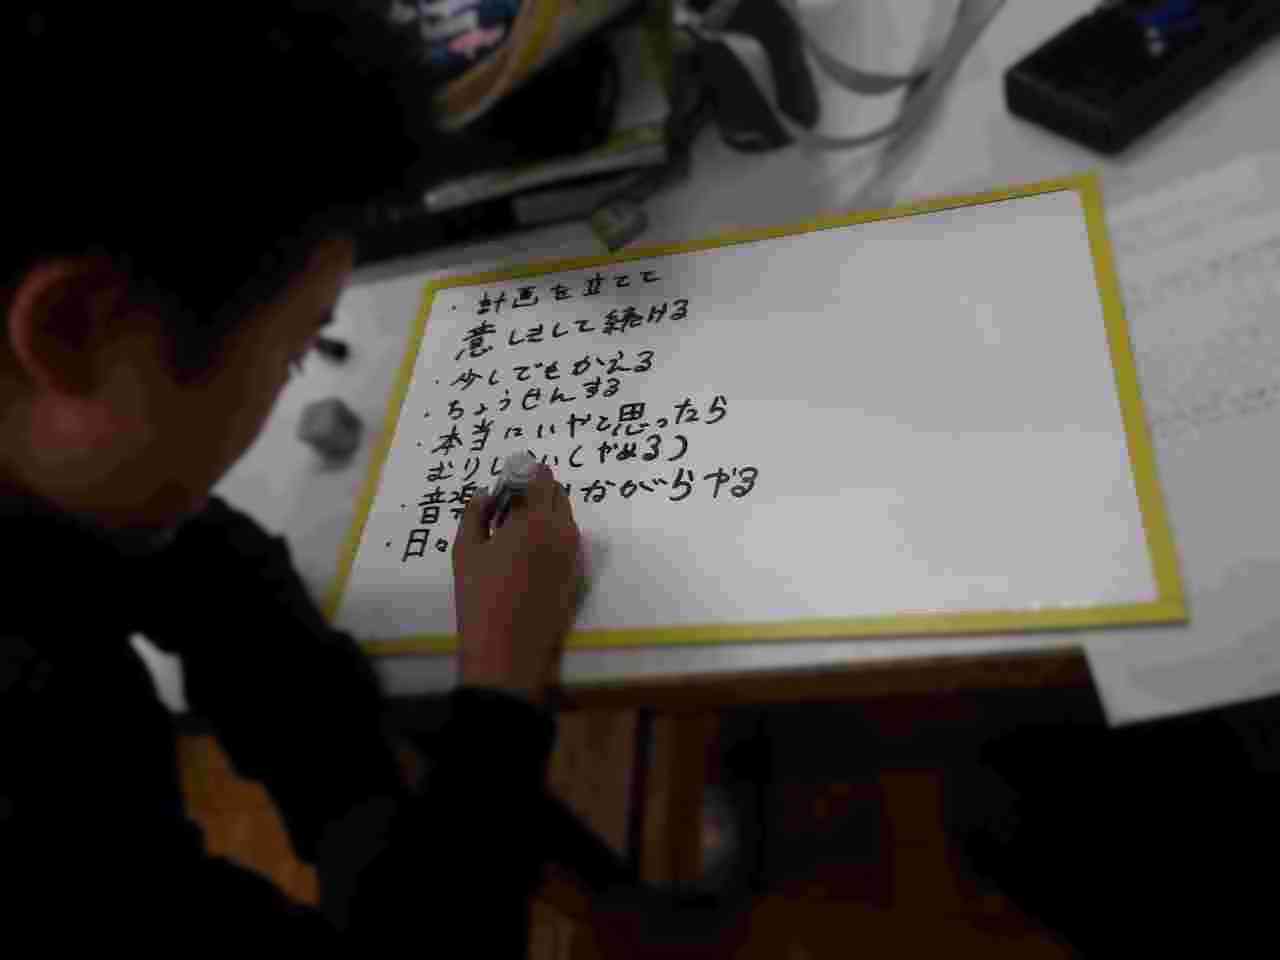 ・計画を立てて
意しきして続ける
・少しでもかえる
・ちょうせんする
・本当にいやと思ったら
むりし い(やめる)
・音楽 ながらやる
・日々